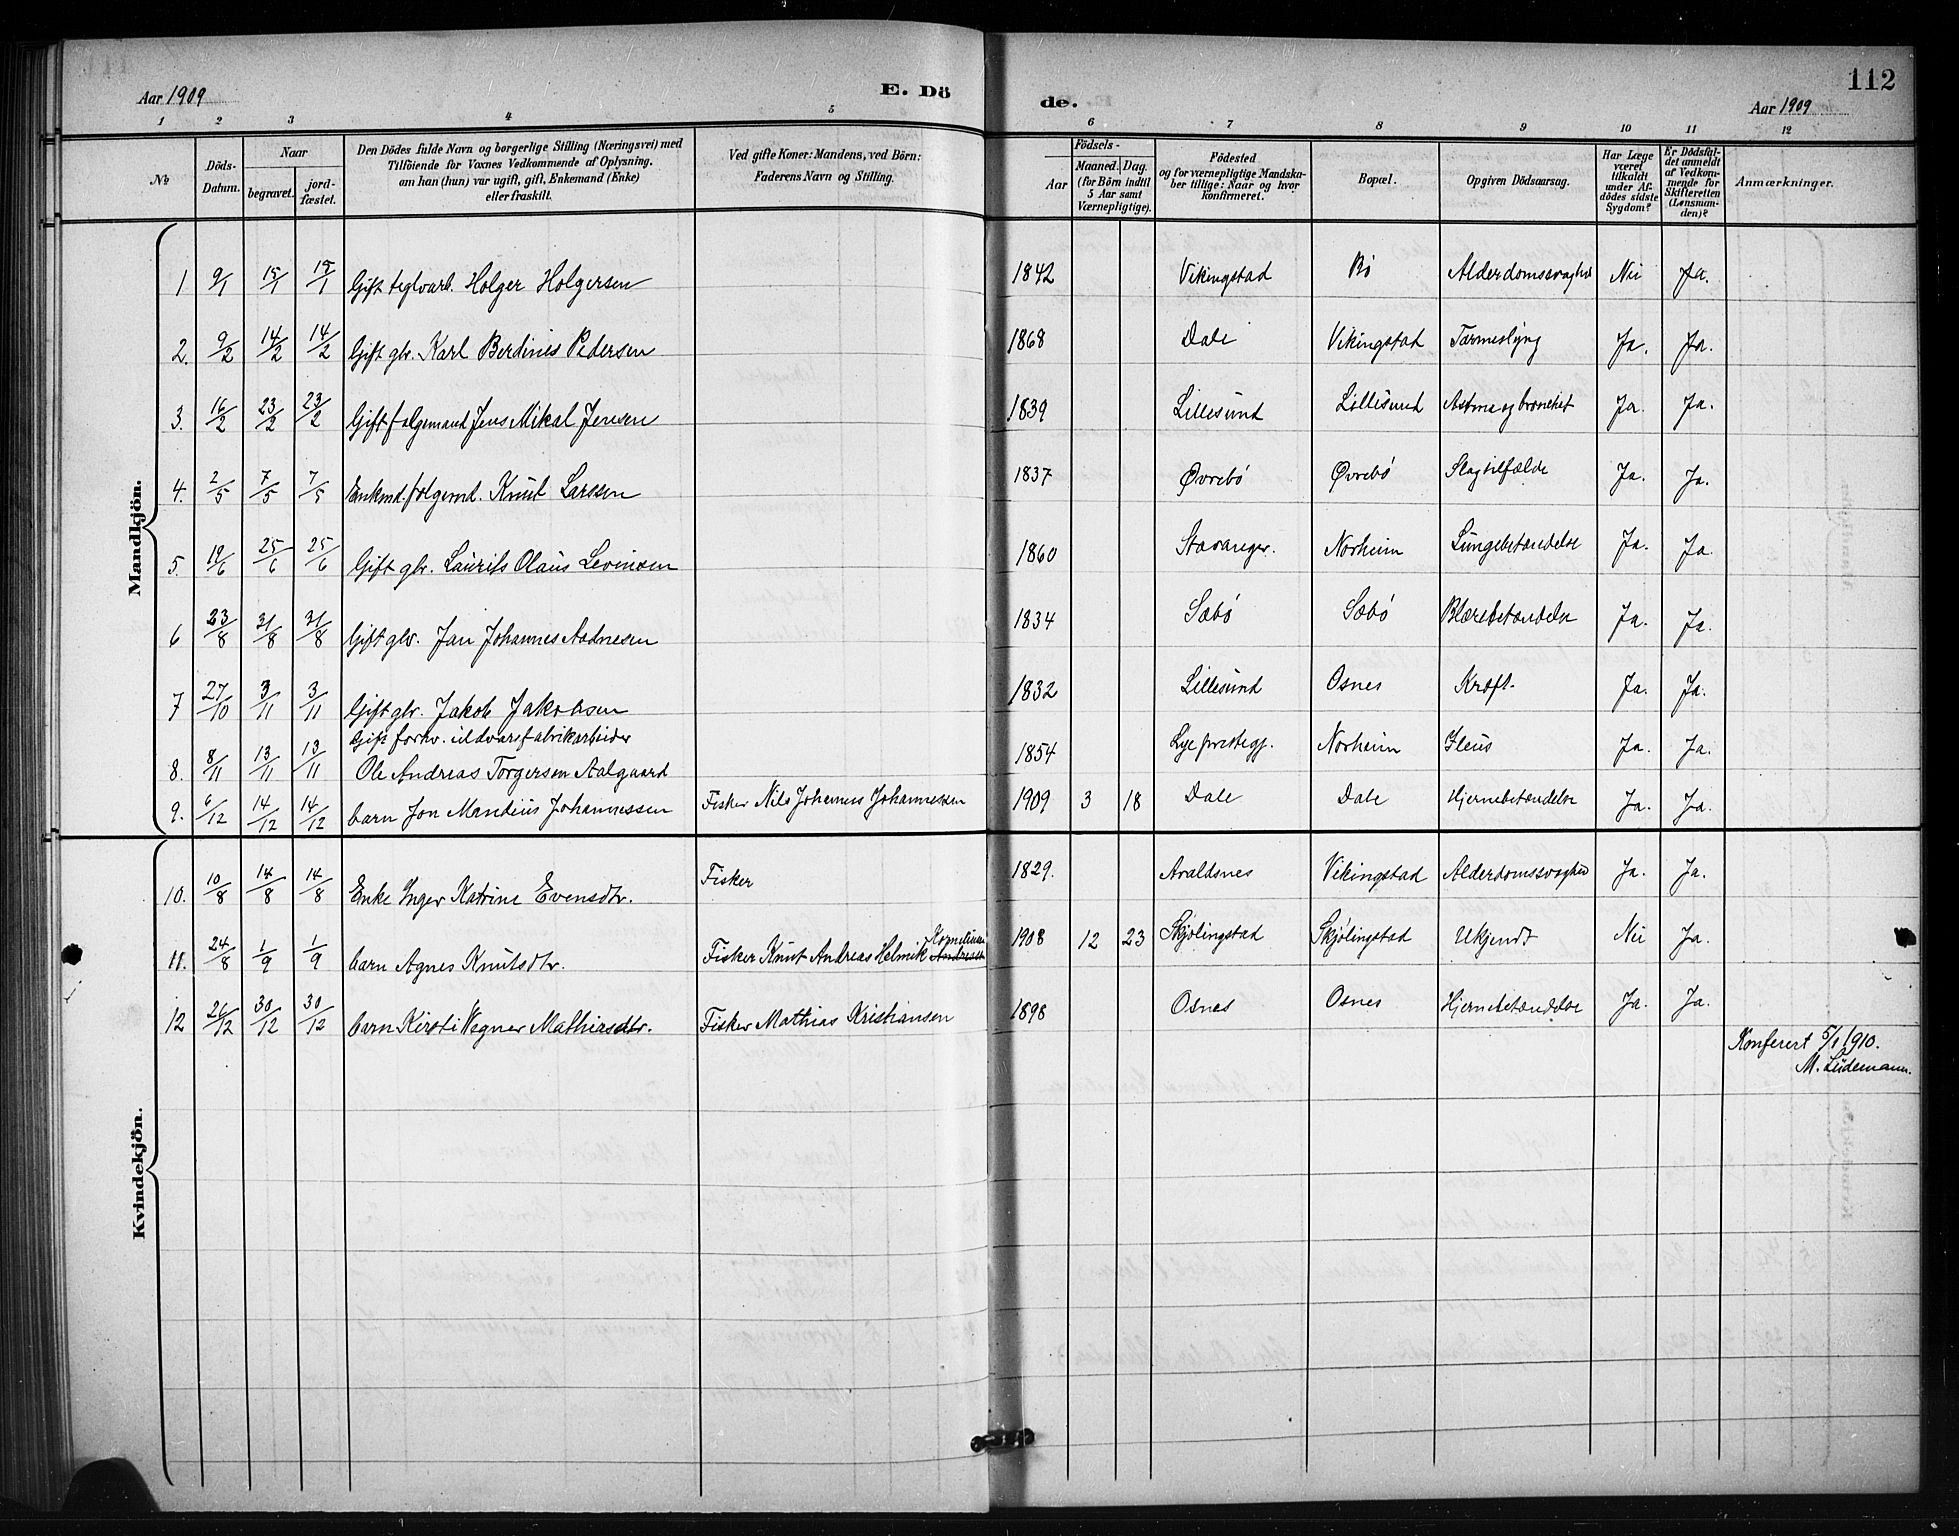 112
Aar 1909
E. Dö
de.
Aar 1909
1 2 3 4 5 6 7 8 9 10 11 12
№
Döds-Datum.
Naar
begravet.
jord-fæstet.
Den Dödes fulde Navn og borgerlige Stilling (Næringsvei) med
Tilföiende for Voxnes Vedkommende af Oplysning,
om han (hun) var ugift, gift, Enkemand (Enke)
eller fraskilt.
Ved gifte Koner: Mandens, ved Börn:
Faderens Navn og Stilling.
Födsels-
Aar
Maaned. Dag.
(for Börn indtil
5 Aar samt
Værnepligtige).
Födested
og for værnepligtige Mandska-
ber tillige: Naar og hvor
konfirmeret.
Bopæl.
Opgiven Dödsaarsag.
Har Læge
været
tilkaldt
under Af-
dödes sidste
Sygdom?
Er Dödsfal-
det anmeldt
af Vedkom-
mende for
Skifteretten
(Lensman-
den)?
Anmærkninger.
Mandkjön.
1 9/1 15/1 15/1 Gift teglvarb. Holger Holgersen 1842 Vikingstad Bø Alderdomssvaghed Nei Ja.
2. 9/2 14/2 14/2 Gift gbr. Karl Berdines Pedersen 1868 Dale Vikingstad Tarmeslyng Ja. Ja.
3. 16/2 23/2 23/2 Gift følgemand Jens Mikal Jensen 1839 Lillesund Lillesund Astma og bronchit Ja. Ja.
4. 2/5 7/5 7/5 Enkmd. følgemd. Knut Larssen 1837 Øvrebø Øvrebø Slagtilfælde Ja. Ja.
5. 19/6 25/6 25/6 Gift gbr. Laurits Olaus Levinsen 1860 Stavanger. Norheim Lungebetændelse Ja. Ja
6 23/8 31/8 31/8 Gift gbr. Jan Johannes Aadnesen 1834 Sæbø Sæbø Blærebetændelse Ja. Ja.
7 27/10 3/11 3/11 Gift gbr. Jakob Jakobsen 1832 Lillesund Osnes Kræft. Ja. Ja.
Gift forhv. uldvarefabrikarbeider
8. 8/11 13/11 13/11 Ole Andreas Torgersen Aalgaard 1854 Lye prestegj. Norheim Ileus Ja. Ja.
9. 6/12 14/12 14/12 barn Jon Mandius Johannessen Fisker Nils Johannes Johannessen 1909 3 18 Dale Dale Hjernebetændelse Ja. Ja.
Kvindekjön.
10. 10/8 14/8 14/8 Enke Inger Katrine Evensdtr. Fisker 1829. Avaldsnes Vikingstad Alderdomssvaghed Ja. Ja.
11. 24/8 1/9 1/9 barn Agnes Knutsdtr. Fisker Knut Andreas Helmik 1908 12 23 Skjølingstad Skjølingstad Ukjendt Nei Ja.
12 26/12 30/12 30/12 barn Kirsti Vagner Mathiasdtr. Fisker Mathias Kristiansen 1898 Osnes Osnes Hjernebetændelse Ja. Ja.
Konferert 5/1 1910.
M. Lüdemann.